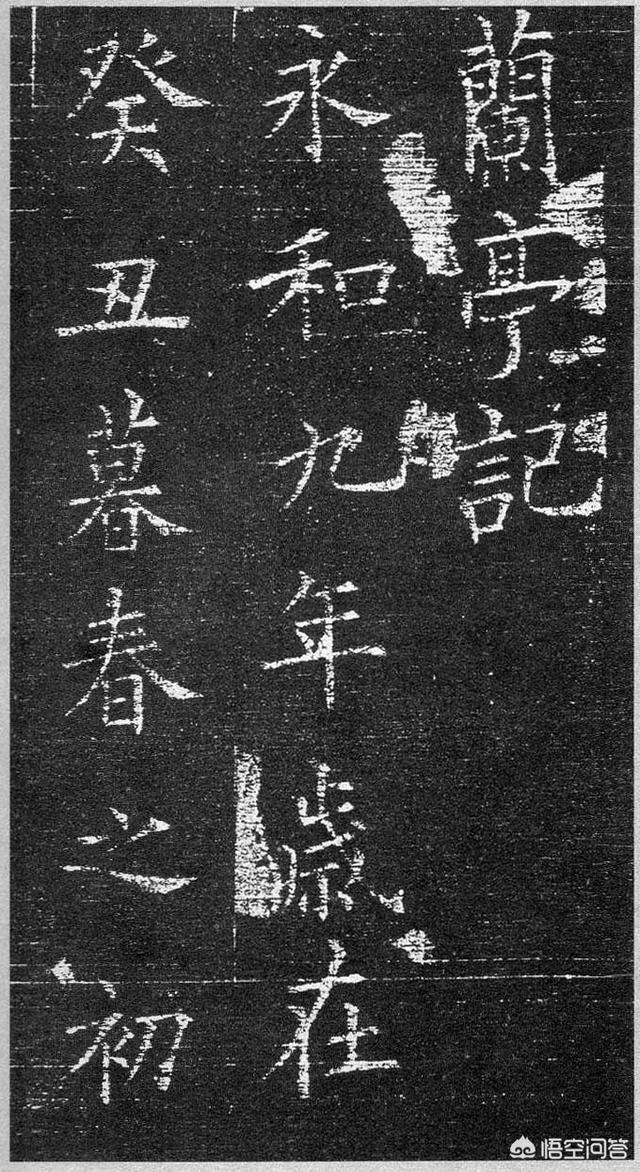 蘭亭記
永和九年歲在
癸丑暮春之初
悟空问答